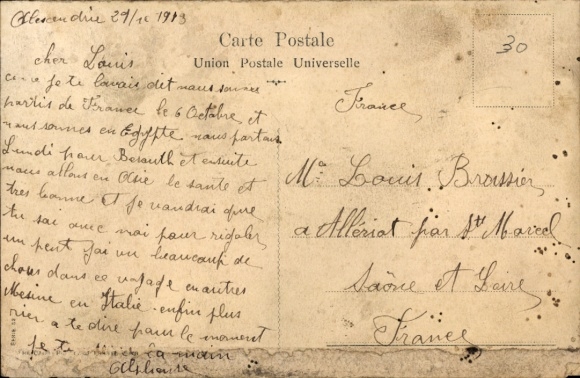 Alexandrie 29/10 1913
cher Louis
je te l'avais dit nous sommes
partis de France le 6 Octobre et
nous sommes en Egypte nous partons
Lundi pour et ensuite
nous allons en Asie le sante et
tres bonne et je voudrai que
tu soi avec moi pour rigoler
un peut J'ai vu beaucoup de
choses dans ce voyage en autres
Mesine en Italie enfin plus
rien a te dire pour le moment
je te la main
Alphonse
Carte Postale
Union Postale Universelle
30
France
Mr Louis Brossier
a Allériot par St Marcel
Saône et Loire
France